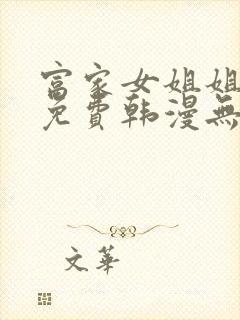 富家女姐姐
免費韩漫無
文華